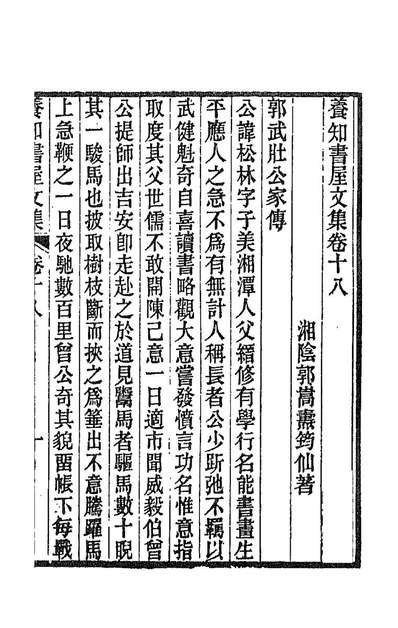 養知書屋文集卷十八
湘陰郭嵩燾筠仙著
郭武壯公家傳
公諱松林字子美湘潭人父縉修有學行名能書畫生
平應人之急不爲有無計人稱長者公少斨弛不羈以
武健魁奇自喜讀書略觀大意嘗發憤言功名惟意指
取度其父世儒不敢開陳己意一日適市聞威毅伯曾
公提師出吉安卽走赴之於道見鬻馬者驅馬數十睨
其一駿馬也披取樹枝斷而挾之爲箠出不意騰躍馬
上急鞭之一日夜馳數百里曾公奇其貌畱帳下每戰
養知書屋文集
卷十八
一